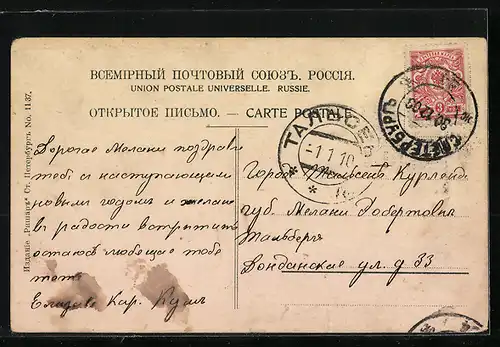 ВСЕМІРНЫЙ ПОЧТОВЫЙ СОЮЗЪ. РОССІЯ.
UNION POSTALE UNIVERSELLE. RUSSIE.
ОТКРЫТОЕ ПИСЬМО. — CARTE POSTALE
Издание „Ришаръ“ Ст. Петербургъ No. 1137.
Дорогая Мелани поздрав
тебя с наступающем
новым годом и желаю
в радости встретить
остаюсь любещие тебе
тетя
Елизаве Кар.
ТАЛЬСЕНЪ
-1 1 10
С.ПЕТЕРБУРГЪ
3
Город Тальсен Курлянд.
губ. Мелани Робертовнѣ
Тальберг
Донданские ул. д 33